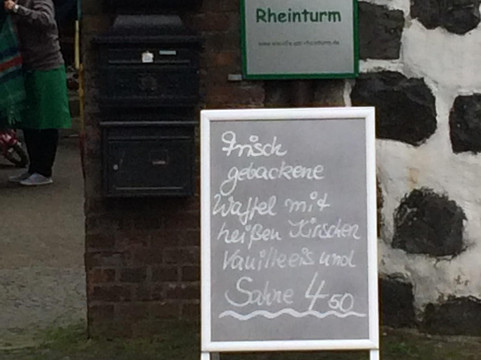 Rheinturm
Frisch
gebackene
Waffel mit
heißen Kirschen
Vanilleeis und
Sahne 4 50